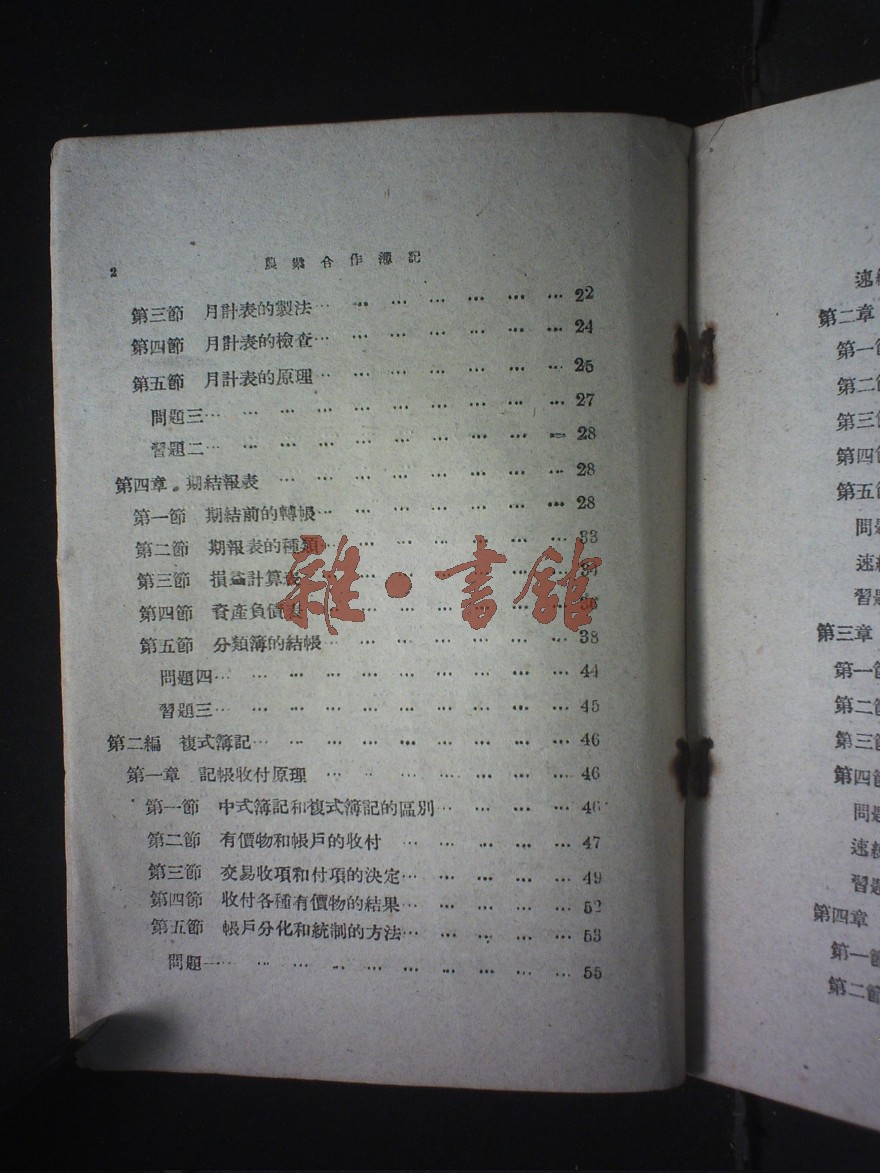 2 農業合作簿記
第三節 月計表的製法… … … … … … … 22
第四節 月計表的檢查… … … … … … … 24
第五節 月計表的原理… … … … … … … 25
問題三… … … … … … … … … … 27
習題二… … … … … … … … … … 28
第四章 期結報表 … … … … … … … … 28
第一節 期結前的轉帳… … … … … … … 28
第二節 期報表的種類… … … … … … … 33
第三節 損益計算表
第四節 資產負債表 … … … … … … … 36
第五節 分類簿的結帳… … … … … … … 38
問題四… … … … … … … … … … 44
習題三… … … … … … … … … … 45
第二編 複式簿記… … … … … … … … … 46
第一章 記帳收付原理 … … … … … … … 46
第一節 中式簿記和複式簿記的區別… … … … 46
第二節 有價物和帳戶的收付 … … … … … 47
第三節 交易收項和付項的決定… … … … … 49
第四節 收付各種有價物的結果… … … … … 52
第五節 帳戶分化和統制的方法… … … … … 53
問題一… … … … … … … … … … 55
雜·書館
速
第二章
第一節
第二節
第三節
第四
第五
問
速
習題
第三章
第一節
第二節
第三節
第四節
問題
速
習題
第四章
第一節
第二節